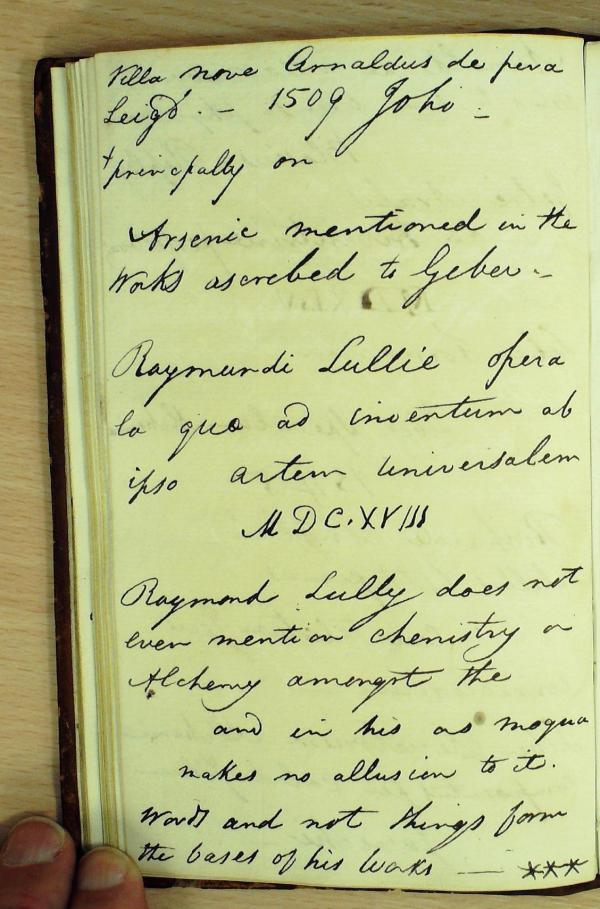 Villa nove Arnaldus de
Leigd. — 1509 Joho —
+ principally on
Arsenic mentioned in the
Works ascribed to Geber —
Raymundi Lullie opera
ea quæ ad inventum ab
ipso artem universalem
MDC.XVIII
Raymond Lully does not
even mention chemistry or
Alchemy amongst the
and in his ars magna
makes no allusion to it.
Words and not things form
the bases of his Works — ***